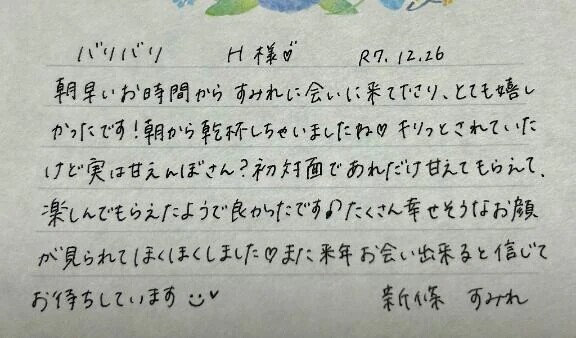 バリバリ H様♡ R7.12.26
朝早いお時間から すみれに会いに来て下さり、とても嬉し
かったです!朝から乾杯しちゃいましたね♡ キリっとされていた
けど実は甘えんぼさん?初対面であれだけ甘えてもらえて、
楽しんでもらえたようで良かったです♪たくさん幸せそうなお顔
が見られてほくほくしました♡また来年お会い出来ると信じて
お待ちしています 新條 すみれ